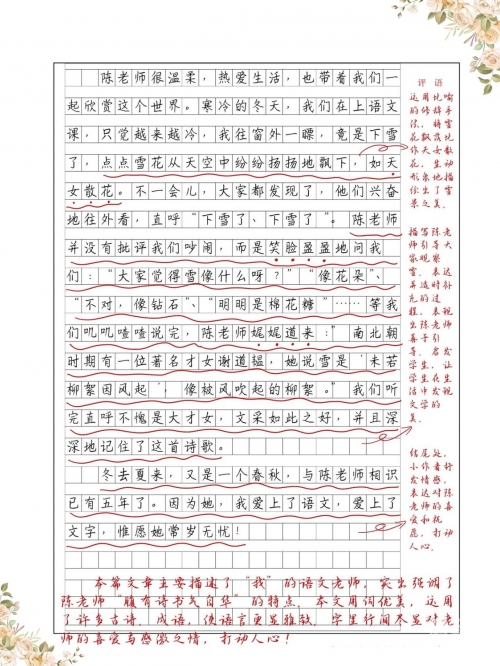 陈老师很温柔，热爱生活，也带着我们一
起欣赏这个世界。寒冷的冬天，我们在上语文
课，只觉越来越冷，我往窗外一瞟，竟是下雪
了，点点雪花从天空中纷纷扬扬地飘下，如天
女散花。不一会儿，大家都发现了，他们兴奋
地往外看，直呼“下雪了、下雪了”。陈老师
并没有批评我们吵闹，而是笑脸盈盈地问我
们：“大家觉得雪像什么呀？”“像花朵”、
“不对，像钻石”、“明明是棉花糖”……等我
们叽叽喳喳说完，陈老师娓娓道来：”南北朝
时期有一位著名才女谢道韫，她说雪是‘未若
柳絮因风起’，像被风吹起的柳絮。”我们听
完直呼不愧是大才女，文采如此之好，并且深
深地记住了这首诗歌。
冬去夏来，又是一个春秋，与陈老师相识
已有五年了。因为她，我爱上了语文，爱上了
文字，惟愿她常岁无忧！
评语
运用比喻
的修辞手
法，将雪
花飘落比
作天女散
花，生动
形象地描
绘出了雪
景之美。
描写陈老
师引导大
家观察
雪，表达
并适时补
充的过
程，表现
出陈老师
善于引
导，启发
学生，让
学生在生
活中发现
文学的
美。
结尾处，
小作者抒
发情感，
表达对陈
老师的喜
爱和祝
愿，打动
人心。
本篇文章主要描述了“我”的语文老师，突出强调了
陈老师“腹有诗书气自华”的特点。本文用词优美，运用
了许多古诗、成语，使语言更显雅致，字里行间不显对老
师的喜爱与感激之情，打动人心！